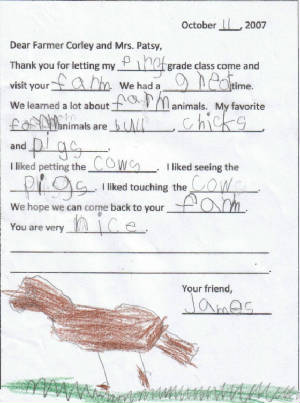 October 11, 2007
Dear Farmer Corley and Mrs. Patsy,
Thank you for letting my first grade class come and
visit your farm. We had a great time.
We learned a lot about farm animals. My favorite
farm animals are bull, chicks,
and pigs.
I liked petting the cows. I liked seeing the
pigs. I liked touching the cow.
We hope we can come back to your farm.
You are very nice.
Your friend,
James